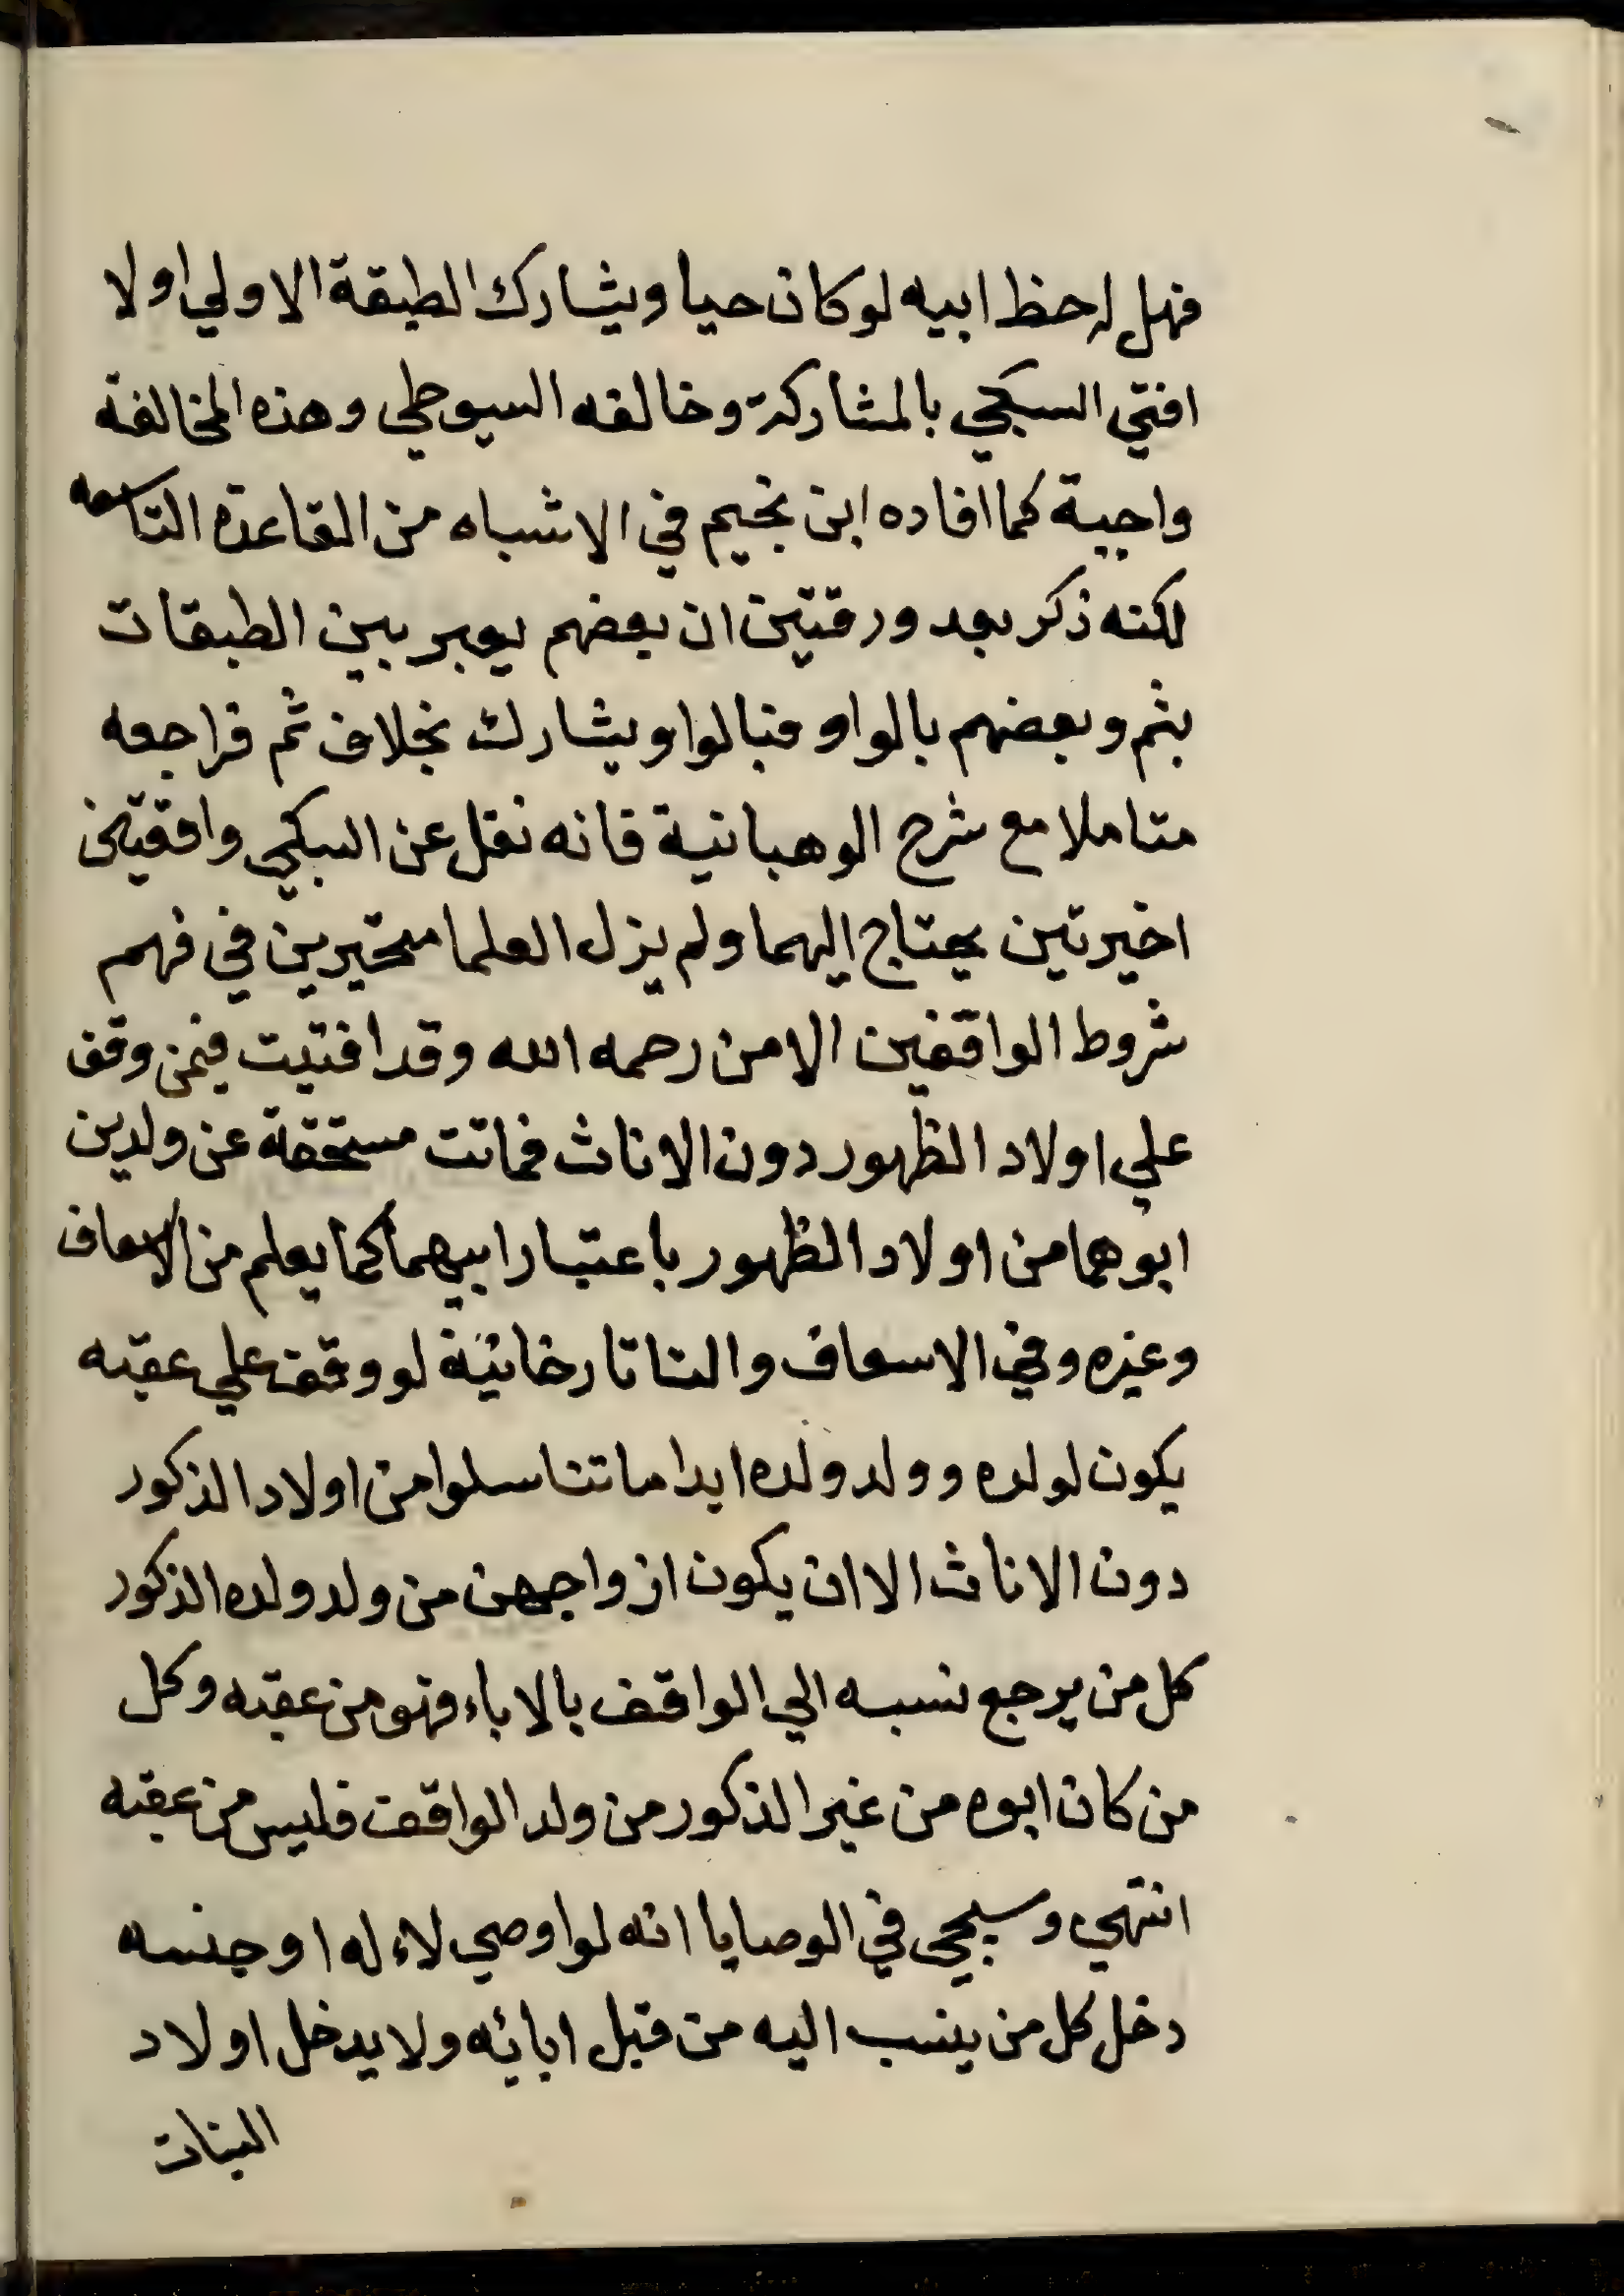 فهل له حظ ابيه لو كان حيا ويشارك الطبقة الاولي اولا
افتي السبكي بالمشاركة وخالفه السيوطي وهذه المخالفة
واجبة كما افاده ابن نجيم في الاشباه من القاعدة التاسعه
لكنه ذكر بعد ورقتين ان بعضهم يعبر بين الطبقات
بثم وبعضهم بالواو فبالواو يشارك بخلاف ثم فراجعه
متاملا مع شرح الوهبانية فانه نقل عن السبكي واقعتين
اخيرتين يحتاج اليهما ولم يزل العلما متحيرين في فهم
شروط الواقفين الا من رحمه الله وقد افتيت فيمن وقف
علي اولاد الظهور دون الاناث فماتت مستحقة عن ولدين
ابوهما من اولاد الظهور باعتبار ابيهما كما يعلم من الاسعاف
وغيره وفي الاسعاف والتاتارخانية لو وقف علي عقبه
يكون لولده وولد ولده ابدا ما تناسلوا من اولاد الذكور
دون الاناث الا ان يكون ازواجهن من ولد ولده الذكور
كل من يرجع نسبه الي الواقف بالاباء فهو من عقبه وكل
من كان ابوه من غير الذكور من ولد الواقف فليس من عقبه
انتهي وسيجي في الوصايا انه لو اوصي لاءله او جنسه
دخل كل من ينسب اليه من قبل ابائه ولا يدخل اولاد
البنات